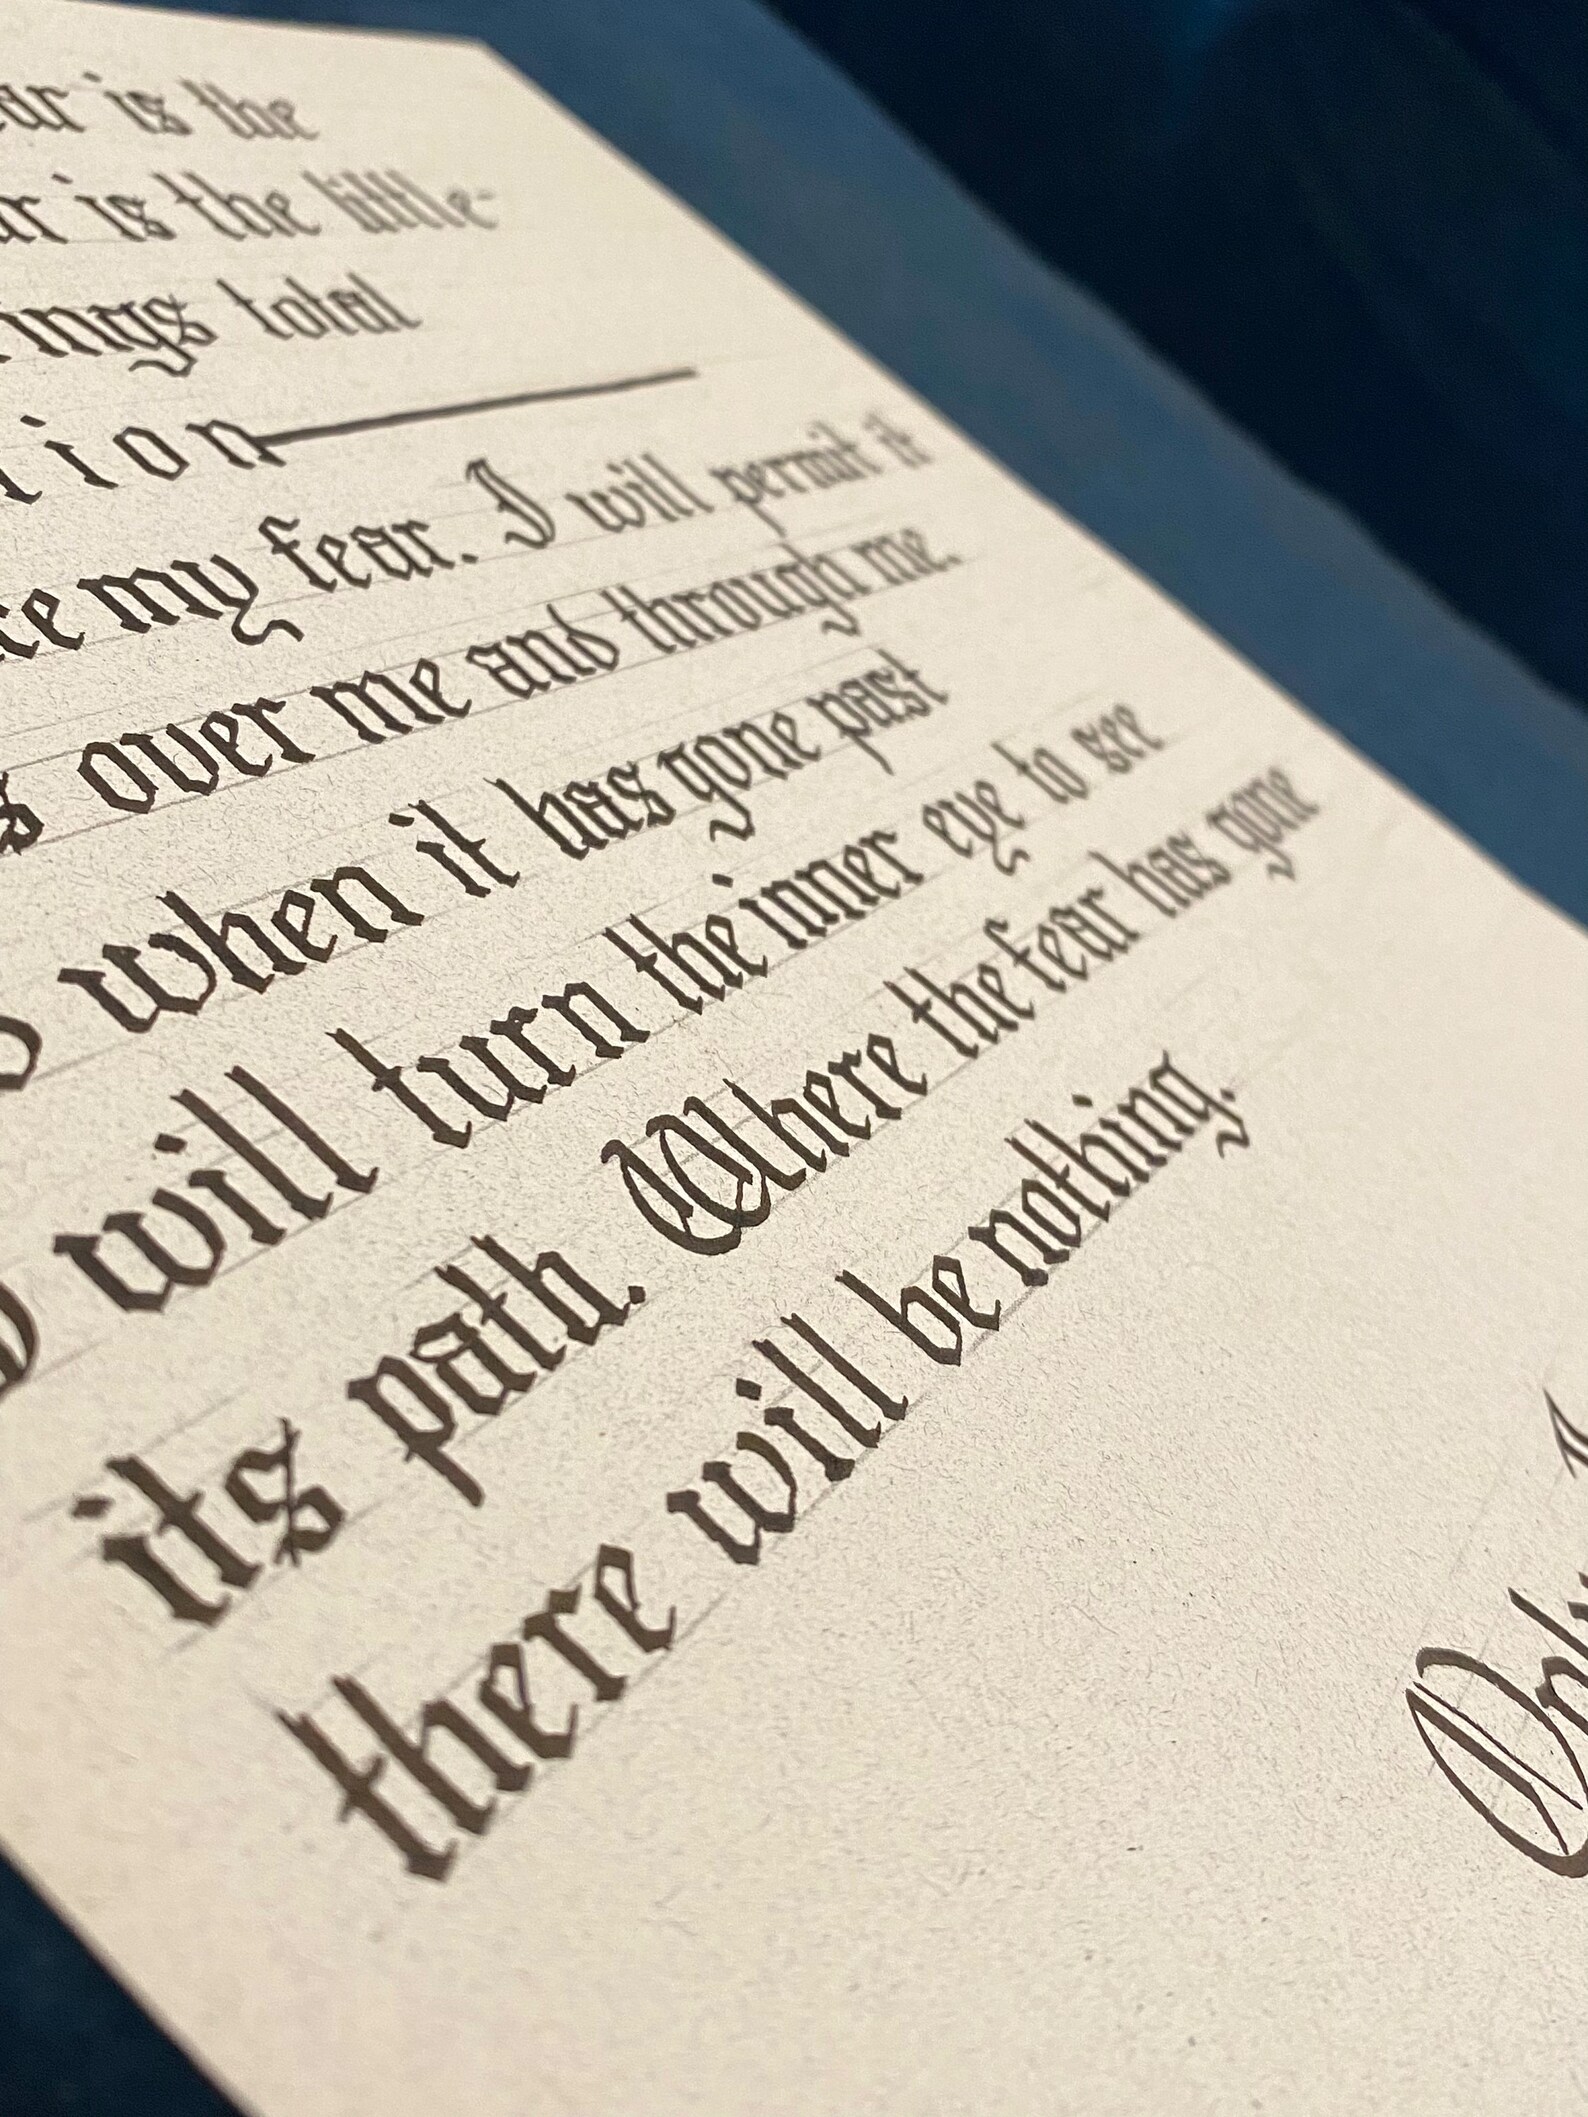 ear is the
ar is the little-
rings total
tion
ce my fear. I will permit it
s over me and through me.
when it has gone past
will turn the inner eye to see
its path. Where the fear has gone
there will be nothing.
Only